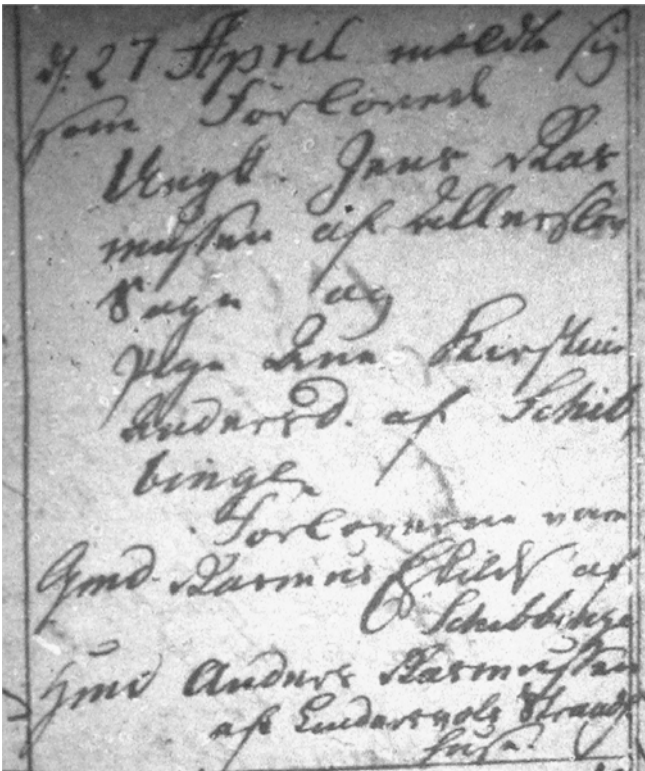 d. 27 April meldte sig
som Forlovede
Ungk. Jens Ras
mussen af Ullerslev
Sogn og
Pige Ane Kirstine
Andersd. af Schib
binge
Forloverne vare
Gmd. Rasmus Eskilds af
Schibbinge
Hmd Anders Rasmussen
af Strands
huse.